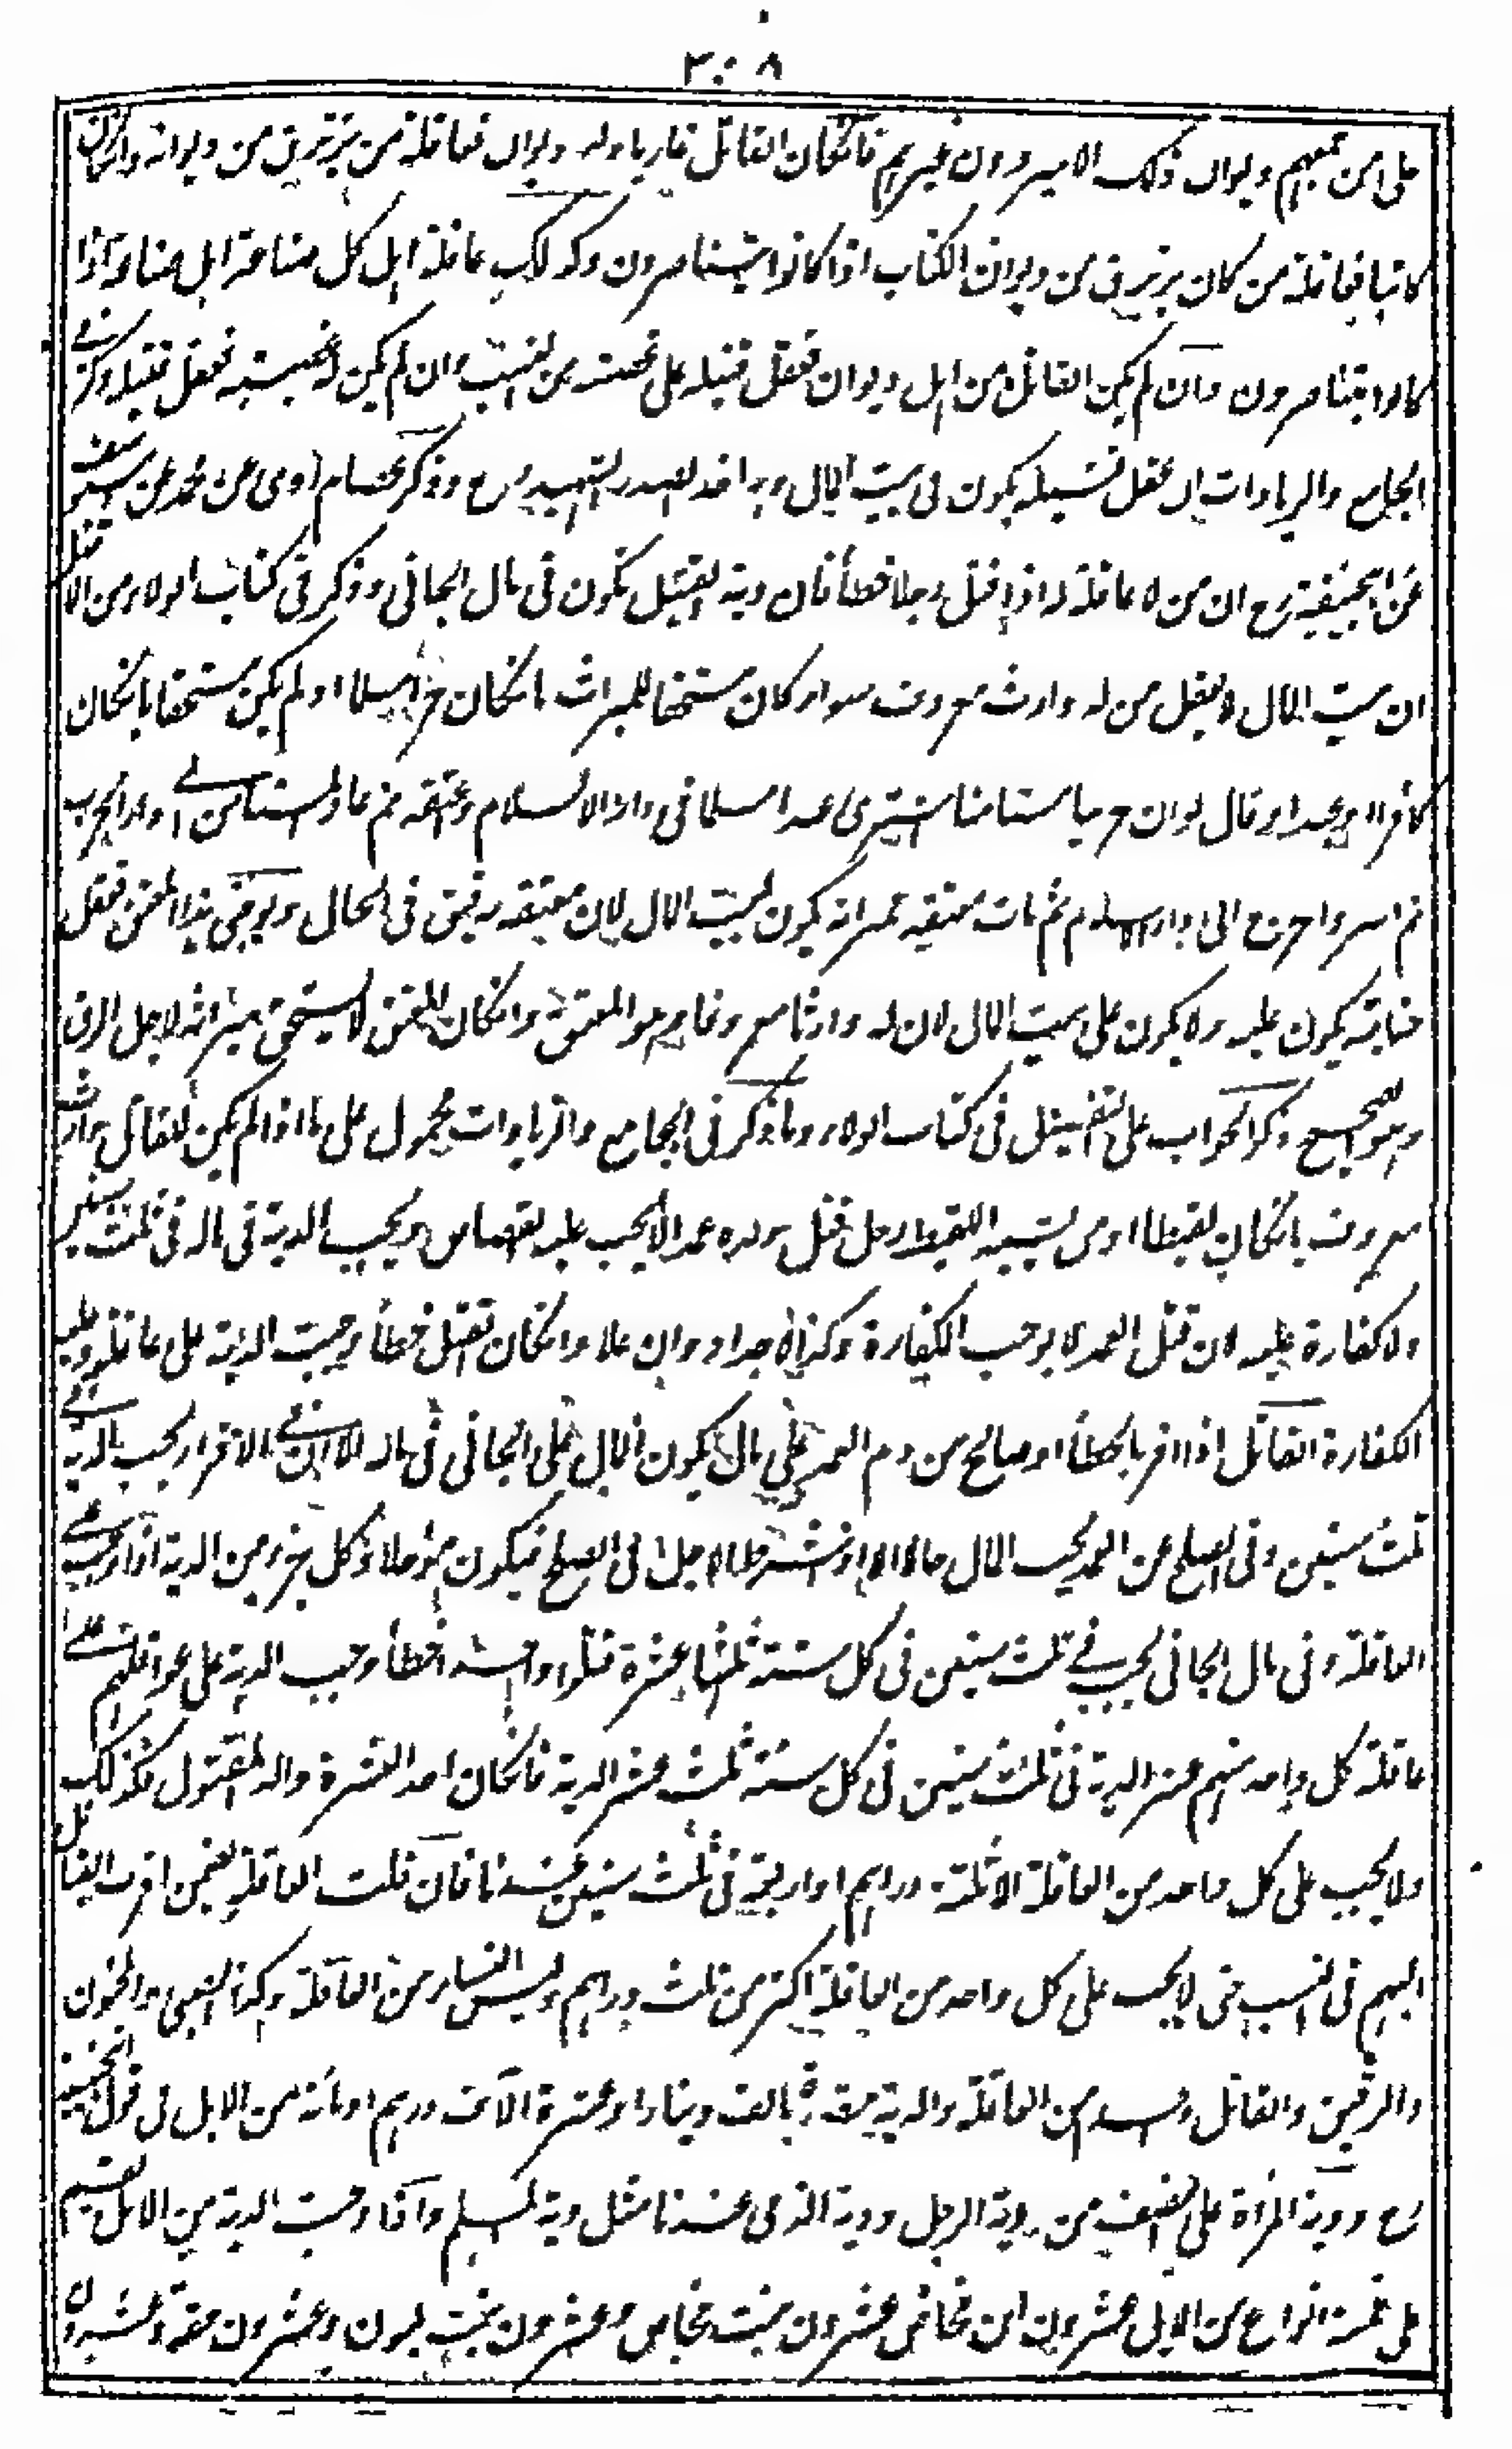 ٣٠٨
على من جمعهم ديوان ذلك الامير دون غيرهم فانكان القاتل غازيا وله ديوان فعاقلته من يرتزق من ديوانه وانكان
كاتبا فعاقلته من كان يرتزق من ديوان الكتاب اذا كانوا يتناصرون وكذلك عاقلة اهل كل صناعة اهل صناعته اذا
كانوا يتناصرون وان لم يكن القاتل من اهل ديوان فعقل قتيله على عصبته من النسب وان لم يكن له عصبته فعقل قتيله وذكر في
الجامع والزيادات ان عقل قتيله يكون في بيت المال وبه اخذ الصدر الشهيد رح وذكر عصام اوى عن محمد عن
عن ابيحنيفة رح ان من لا عاقلة له اذا قتل رجلا خطأ فان دية القتيل تكون في مال الجاني وذكر في كتاب الولاء من الا
ان بيت المال لا يعقل من له وارث معروف سواء كان مستحقا للميراث بانكان حرا مسلما او لم يكن مستحقا بانكان
كافرا او عبدا وقال لو ان حربيا مستامنا اشترى عبدا مسلما في دار الاسلام وعتقه ثم عاد المستامن الى دار الحرب
ثم اسر واخرج الى دار الاسلام ثم مات معتقه فميراثه يكون لبيت المال لان معتقه رقيق في الحال ولو جنى هذا المعتق فعقل
جنايته يكون عليه ولا يكون على بيت المال لان له وارثا معروفا وهو المعتق وانكان المعتق لا يستحق ميراثه لاجل الرق
وهو الصحيح ذكر الجواب على التفصيل في كتاب الولاء وما ذكر في الجامع والزيادات محمول على ما اذا لم يكن للقاتل وارث
معروف بانكان لقيطا او من يشبه اللقيط رجل قتل ولده عمدا لا يجب عليه القصاص ويجب الدية في ماله في ثلث سنين
ولا كفارة عليه لان قتل العمد لا يوجب الكفارة وكذا الاجداد وان علا وانكان القتل خطأ وجبت الدية على عاقلته وعليه
الكفارة القاتل اذا اقر بالخطأ او صالح من دم العمد على مال يكون المال على الجاني في ماله الا ان في الاقرار يجب الدية في
ثلث سنين وفي الصلح عن العمد يجب المال حالا الا اذا شرطا الاجل في الصلح فيكون مؤجلا وكل جزء من الدية اذا وجب على
العاقلة وفي مال الجاني يجب في ثلث سنين في كل سنة ثلثها عشرة قتلوا واحدا خطأ وجب الدية على عواقلهم على
عاقلة كل واحد منهم عشر الدية في ثلث سنين في كل سنة ثلث عشر الدية فانكان احد العشرة والد المقتول فكذلك
ولا يجب على كل واحد من العاقلة الا ثلثة دراهم او اربعة في ثلث سنين عندنا فان قلت العاقلة يضمن اقرب القبائل
اليهم في النسب حتى لا يجب على كل واحد من العاقلة اكثر من ثلث دراهم وليس النساء من العاقلة وكذا الصبي والمجنون
والرقيق والقاتل واحد من العاقلة والدية مقدرة بالف دينار او عشرة آلاف درهم او مائة من الابل في قول ابيحنيفة
رح ودية المرأة على النصف من دية الرجل ودية الذمي عندنا مثل دية المسلم واذا وجبت الدية من الابل تقسم
على خمسة انواع من الابل عشرون ابن مخاض وعشرون بنت مخاض وعشرون بنت لبون وعشرون حقة وعشرون